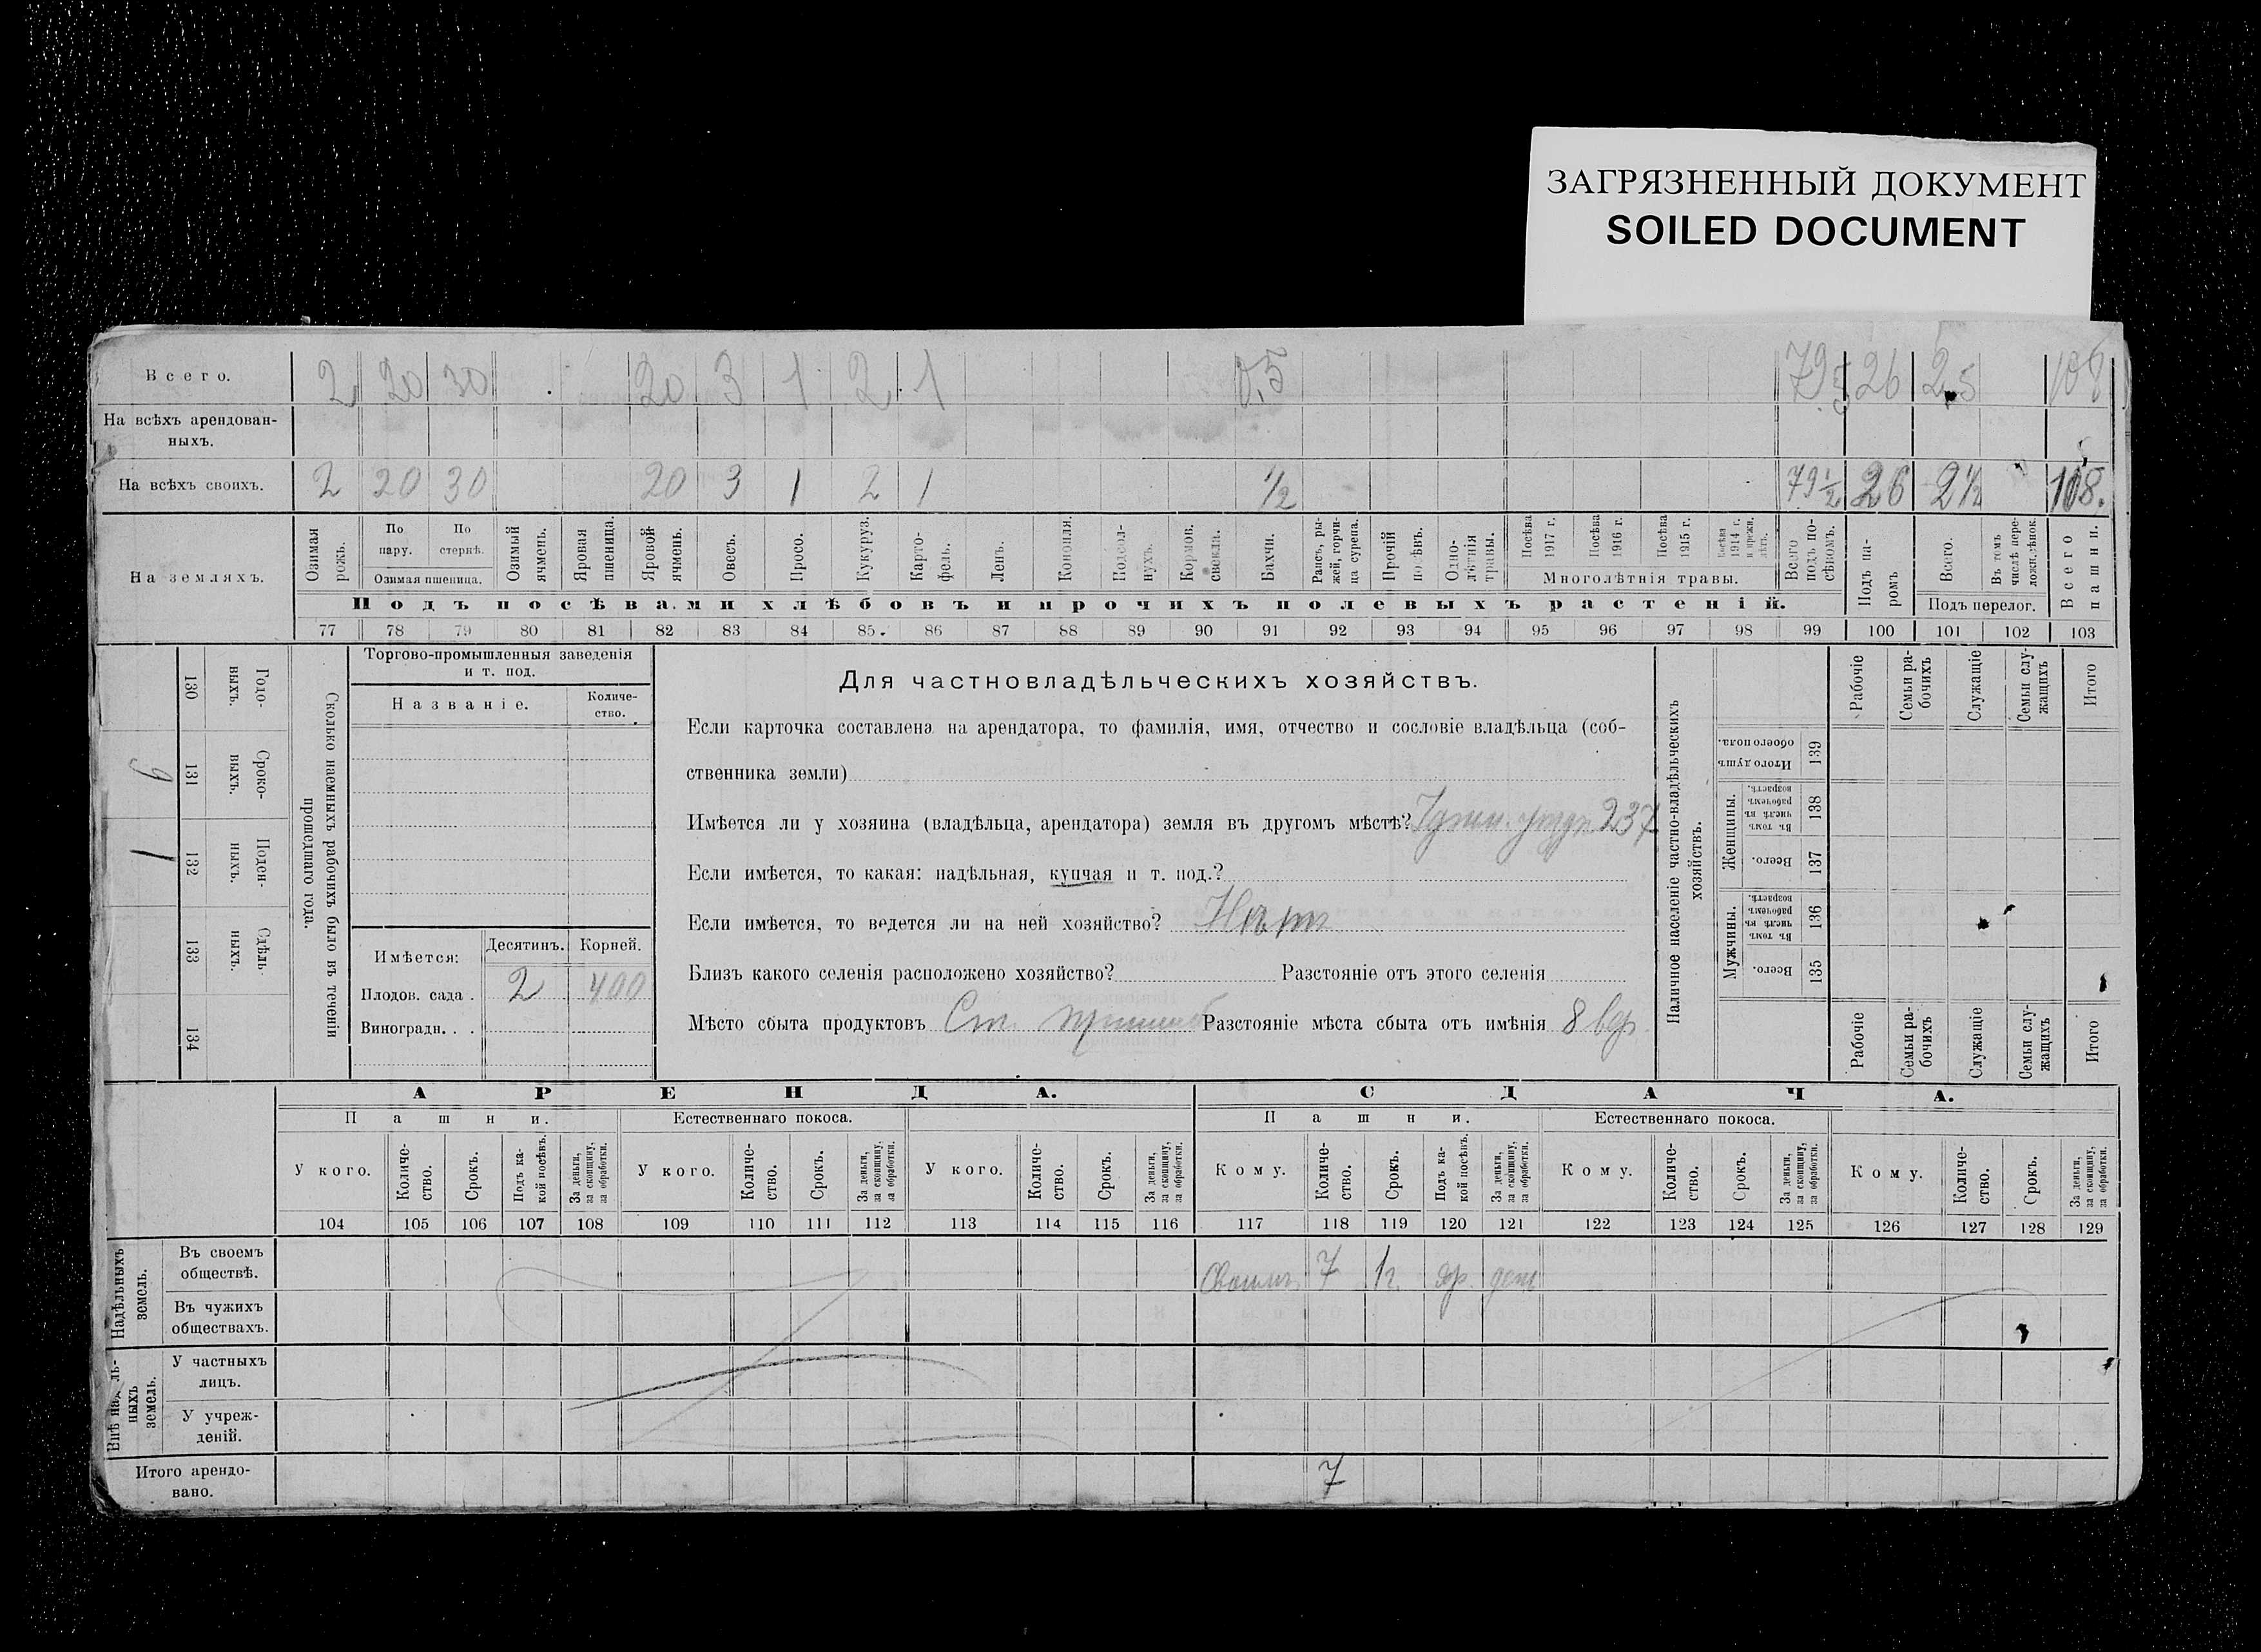 ЗАГРЯЗНЕННЫЙ ДОКУМЕНТ
SOILED DOCUMENT
Всего. 2 20 30 20 3 1 2 1 0,5 79,5 26 2,5 108
На всѣхъ арендован-
ныхъ.
На всѣхъ своихъ. 2 20 30 20 3 1 2 1 1/2 79 1/2 26 2 1/2 108.
На земляхъ.
Озимая рожь.
По пару.
По стернѣ.
Озимая пшеница.
Озимый ячмень.
Яровая пшеница.
Яровой ячмень.
Овесъ.
Просо.
Кукуруз.
Карто-
фель.
Ленъ.
Конопля.
Подсол-
нухъ.
Кормов. свекла.
Бахчи.
Рапсъ, ры-
жей, горчи-
ца сурепа.
Прочій посѣвъ.
Одно-
лѣтнія травы.
Посѣва 1917 г.
Посѣва 1916 г.
Посѣва 1915 г.
Посѣва 1914 г. и прежн. лѣтъ.
Многолѣтнія травы.
Всего подъ по-
сѣвомъ.
Подъ па-
ромъ
Всего.
Въ томъ числѣ пере-
ложн.
Подъ перелог.
Всего пашни.
Подъ посѣвами хлѣбовъ и прочихъ полевыхъ растеній.
77 78 79 80 81 82 83 84 85. 86 87 88 89 90 91 92 93 94 95 96 97 98 99 100 101 102 103
Годо-
выхъ. 130
Сроко-
выхъ. 131 6
Поден-
ныхъ. 132 1
Сдѣль-
ныхъ. 133
134
Сколько наемныхъ рабочихъ было въ теченіи
прошедшаго года.
Торгово-промышленныя заведенія
и т. под.
Названіе.
Количе-
ство.
Имѣется: Десятинъ. Корней.
Плодов. сада. 2 400
Виноградн. . .
Для частновладѣльческихъ хозяйствъ.
Если карточка составлена на арендатора, то фамилія, имя, отчество и сословіе владѣльца (соб-
ственника земли)
Имѣется ли у хозяина (владѣльца, арендатора) земля въ другомъ мѣстѣ? 237
Если имѣется, то какая: надѣльная, купчая и т. под.?
Если имѣется, то ведется ли на ней хозяйство? Нѣтъ
Близъ какого селенія расположено хозяйство? Разстояніе отъ этого селенія
Мѣсто сбыта продуктовъ Ст. Разстояніе мѣста сбыта отъ имѣнія 8 вер
Наличное населеніе частно-владѣльческихъ
хозяйствъ.
Рабочіе
Семьи ра-
бочихъ
Служащіе
Семьи слу-
жащихъ
Итого
Итого душъ обоего пола. 139
Женщины.
Въ томъ числѣ въ рабочемъ возрастѣ. 138
Всего. 137
Мужчины.
Въ томъ числѣ въ рабочемъ возрастѣ. 136
Всего. 135
Рабочіе
Семьи ра-
бочихъ
Служащіе
Семьи слу-
жащихъ
Итого
АРЕНДА. СДАЧА.
Пашни. Естественнаго покоса. Пашни. Естественнаго покоса.
У кого. Количе-
ство. Срокъ. Подъ ка-
кой посѣвъ. За деньги, за скопщину, за обработки.
У кого. Количе-
ство. Срокъ. За деньги, за скопщину, за обработки.
У кого. Количе-
ство. Срокъ. За деньги, за скопщину, за обработки.
Кому. Количе-
ство. Срокъ. Подъ ка-
кой посѣвъ. За деньги, за скопщину, за обработки.
Кому. Количе-
ство. Срокъ. За деньги, за скопщину, за обработки.
Кому. Количе-
ство. Срокъ. За деньги, за скопщину, за обработки.
104 105 106 107 108 109 110 111 112 113 114 115 116 117 118 119 120 121 122 123 124 125 126 127 128 129
Надѣльныхъ земель.
Въ своемъ
обществѣ. Своимъ 7 1г. яр. ден
Въ чужихъ
обществахъ.
Внѣ надѣль-
ныхъ земель.
У частныхъ
лицъ.
У учреж-
деній.
Итого арендо-
вано. 7